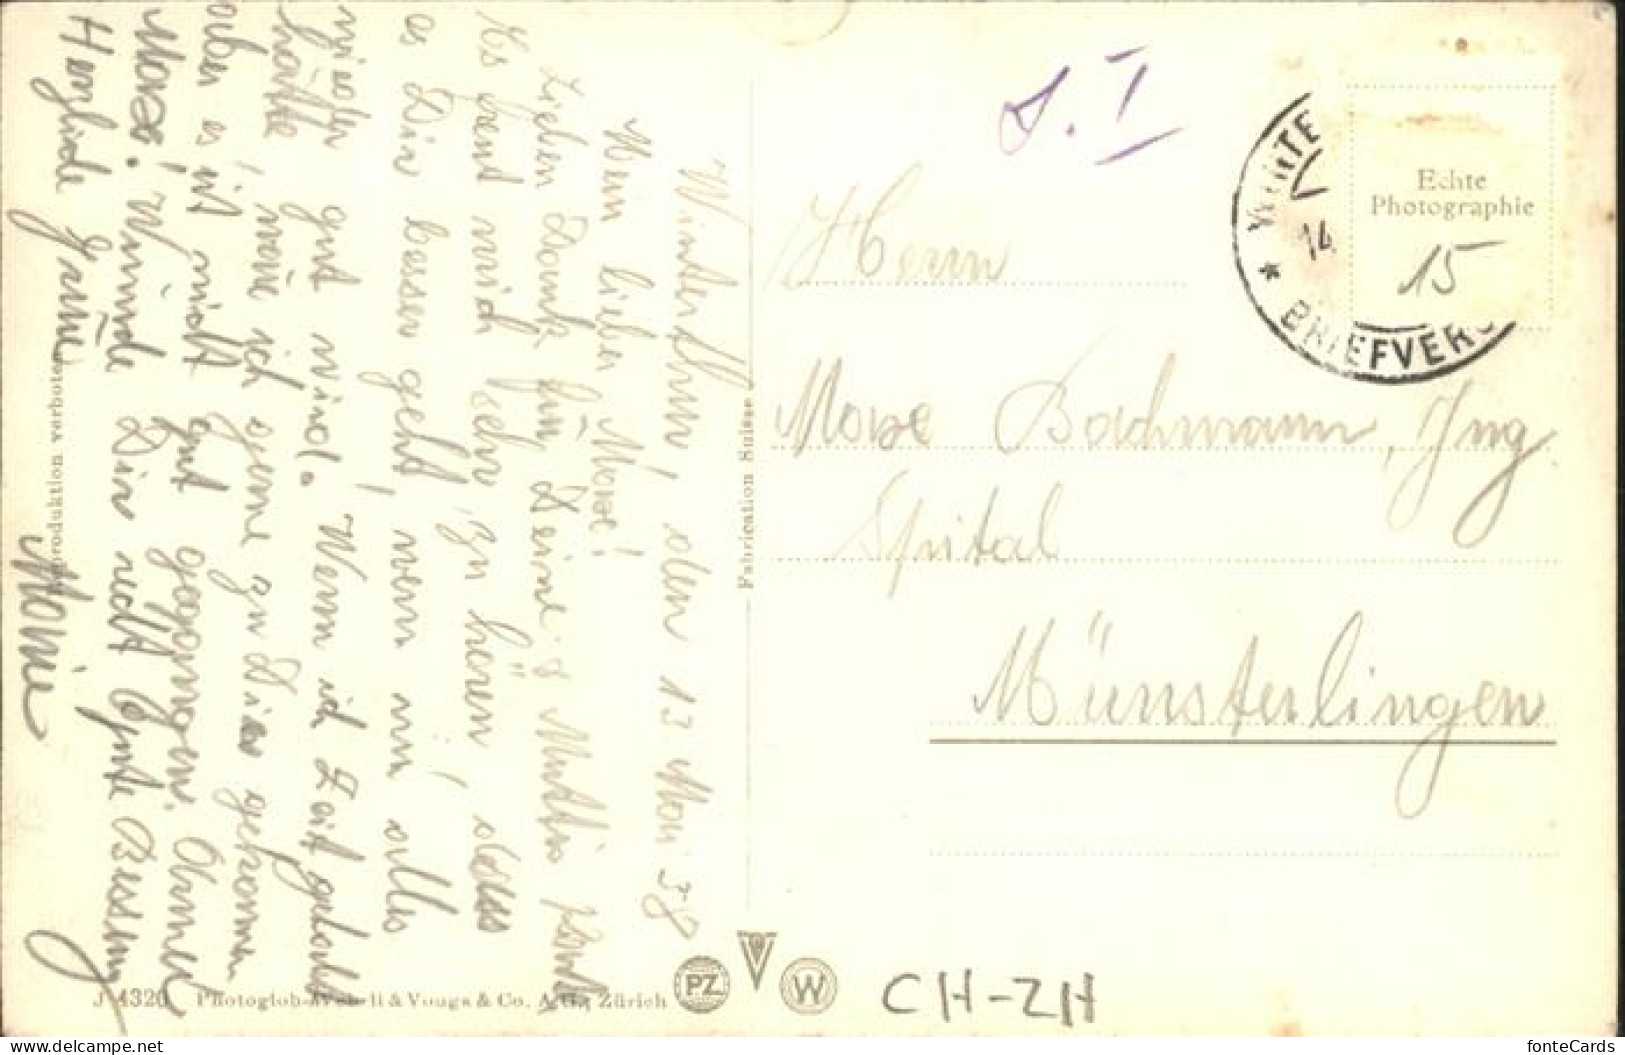 Winterthur, den 13 Mai 38
Mein lieber Max!
Lieben Dank für Deine & Muttis Karte
Es freut mich sehr, zu hören, dass
es Dir besser geht, wenn nur alles
wieder gut wird. Wenn ich Zeit gehabt
hätte, wäre ich gerne zu Dir gekommen
aber es ist nicht gut gegangen. Armer
Maxe! Wünsche Dir recht gute Besserung
Herzliche Grüsse
Marie
S. I
Herrn
Max Bachmann, Ing.
Spital
Münsterlingen
WINTE
14
* BRIEFVERS
Echte
Photographie
15
Reproduktion verboten
Fabrication Suisse
J 4320 Photoglob-Wehrli & Vouga & Co. A.G., Zürich
PZ
V
W
CH-ZH
fonteCards
www.delcampe.net